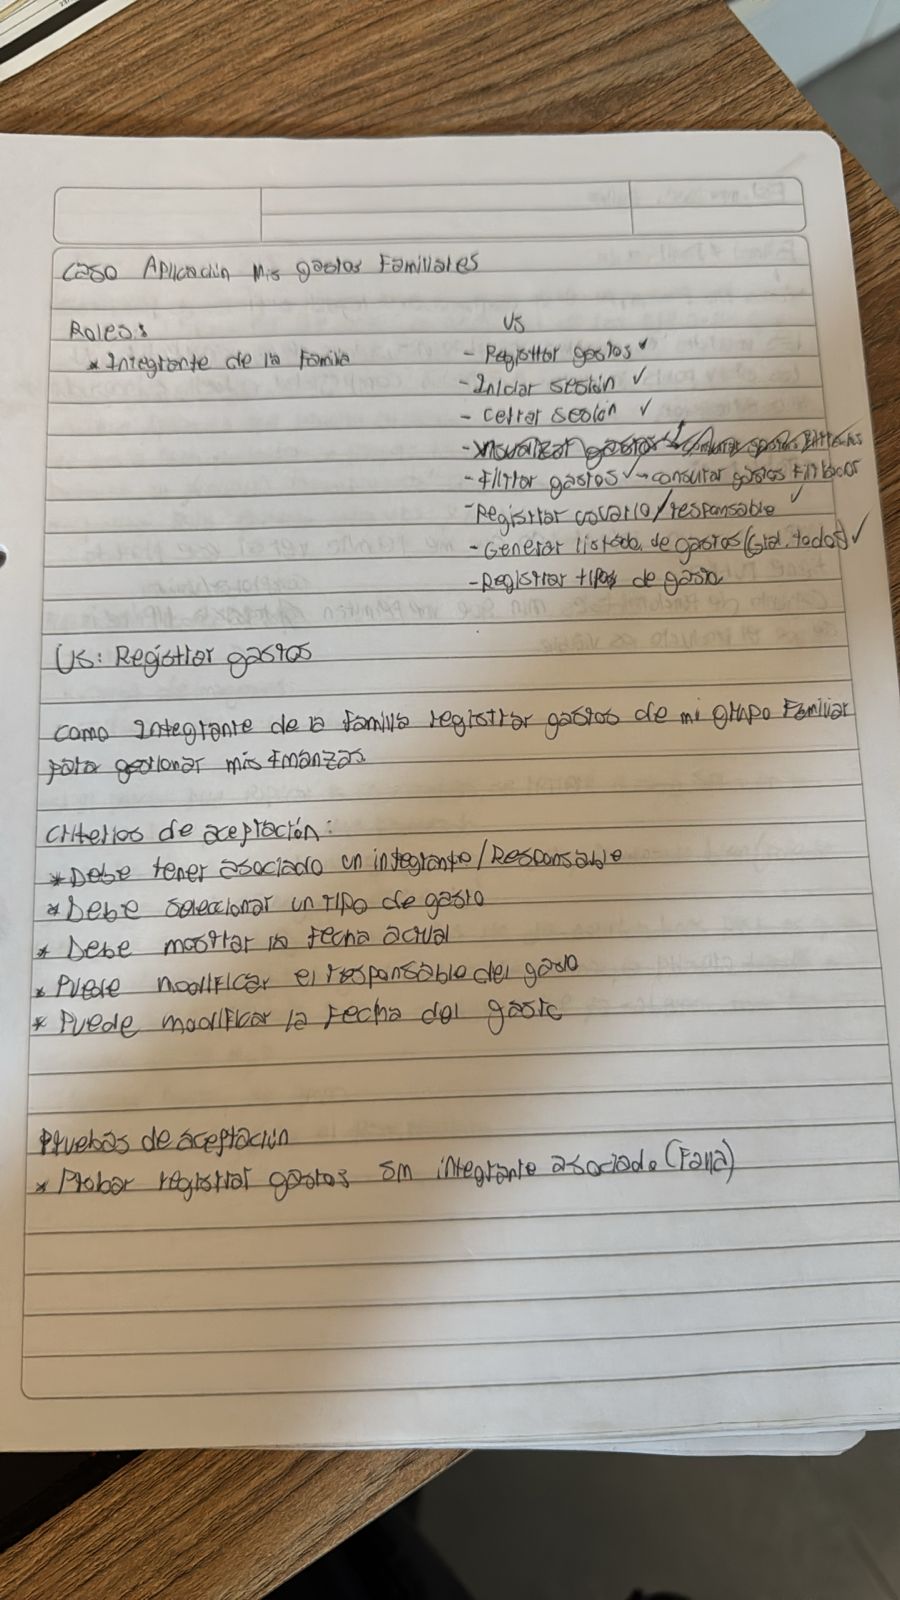 Caso Aplicación Mis gastos Familiares
Roles:
* Integrante de la Familia
US
- Registrar gastos ✓
- Iniciar sesión ✓
- Cerrar sesión ✓
- Visualizar gastos
- Filtrar gastos ✓ → consultar gastos Filtrados
- Registrar usuario/responsable ✓
- Generar listado de gastos (Gral. todos) ✓
- Registrar tipos de gasto
US: Registrar gastos
Como Integrante de la familia registrar gastos de mi grupo Familiar
para gestionar mis finanzas
Criterios de aceptación:
* Debe tener asociado un integrante/Responsable
* Debe seleccionar un tipo de gasto
* Debe mostrar la Fecha actual
* Puede modificar el responsable del gasto
* Puede modificar la Fecha del gasto
Pruebas de aceptación
* Probar registrar gastos sin integrante asociado (Falla)